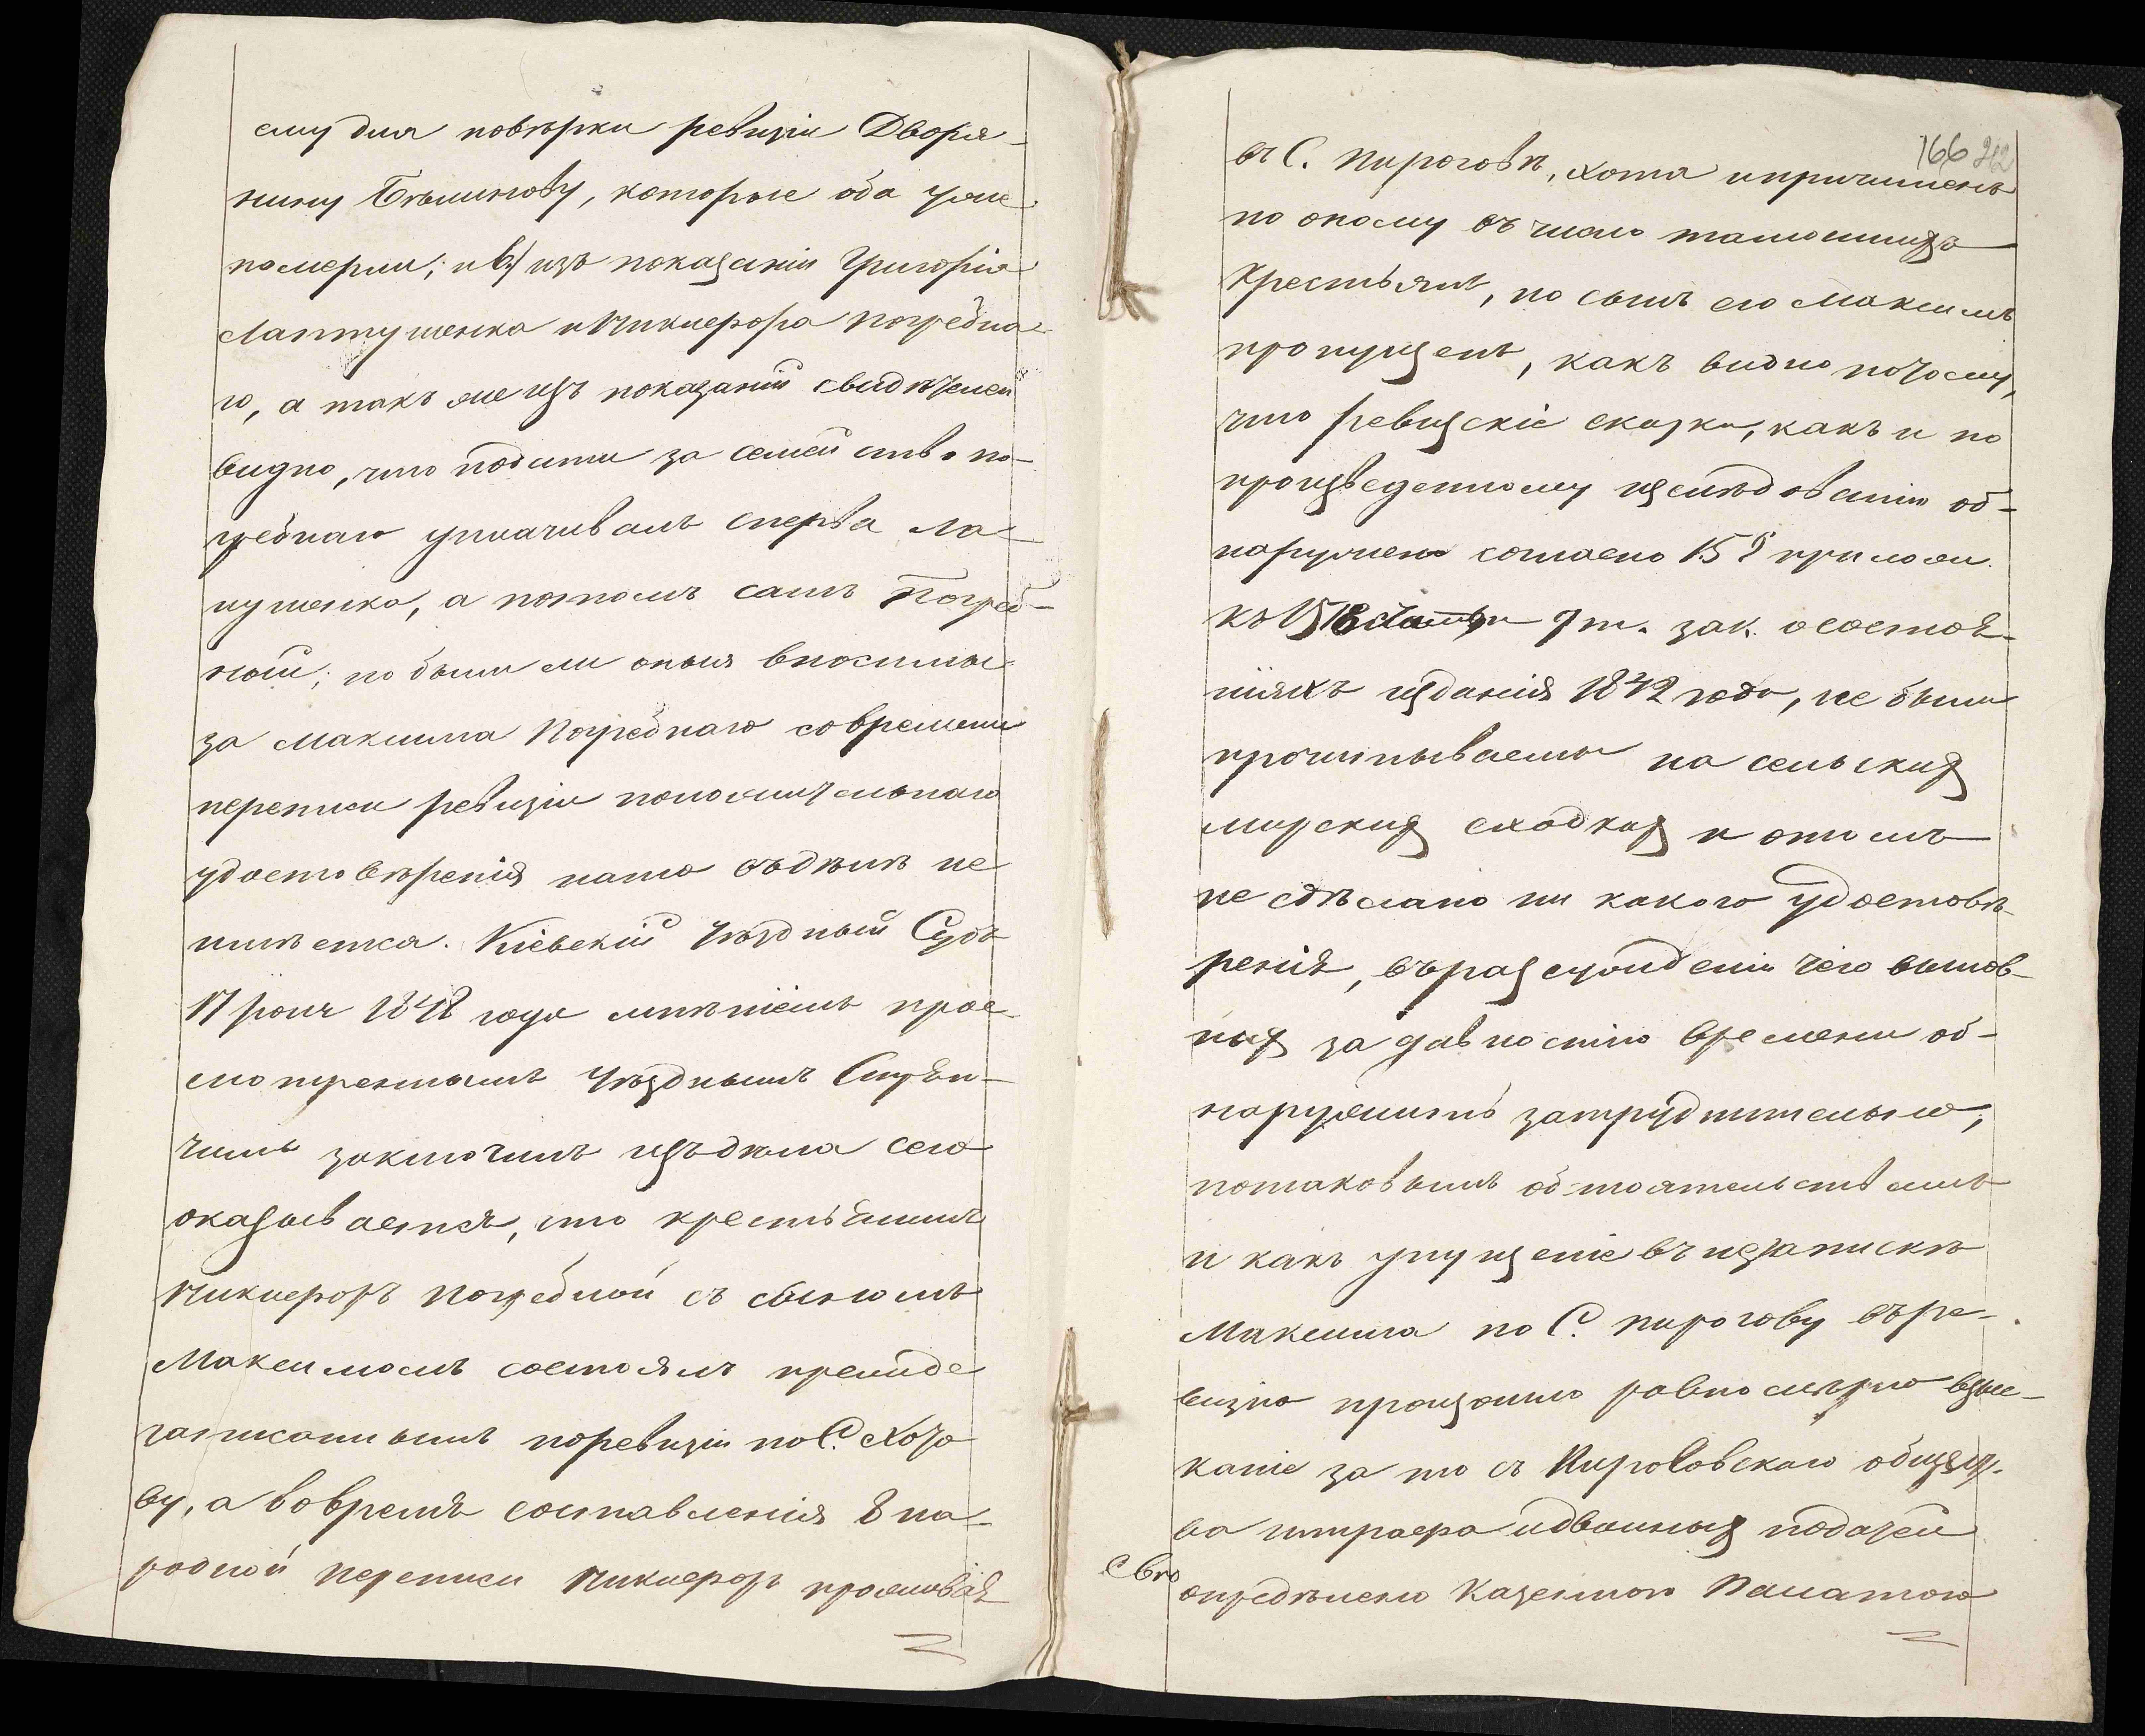 ему для повѣрки ревизіи Дворя-
нину Бѣлинову, которые оба уже
померли; и в./ изъ показаній Григорія
Лаптушенка и Никифора Погребна-
го, а такъ же изъ показаній свидѣтелей
видно, что подати за семейство По-
гребнаго уплачивалъ сперва Ла-
пушенко, а потомъ самъ Погреб-
ной; но были ли оныя вносимы
за Максима Погребнаго современи
переписи ревизіи положительнаго
удостовѣренія нато въдѣлѣ не
имѣется. Кіевскій Уѣздный Судъ
1848 года мнѣніемъ прос-
мотреннымъ Уѣзднымъ Стряп-
чимъ заключилъ изъ дѣла сего
оказывается, что крестьянинъ
Никифоръ Погребной съ сыномъ
Максимомъ состоялъ прежде
записаннымъ поревизіи по С. Хото
ву, а вовремя составленія 8 на-
родной переписи Никифоръ проживая
166 212
въ С. Пироговѣ, хотя ипричисленъ
по оному въ число тамошнихъ
крестьянъ, но сынъ его Максимъ
пропущенъ, какъ видно потому,
что ревизскіе сказки, какъ и по
произведенному изслѣдованію об-
наружено согласно 15 § прилож.
къ 1518 статьи 9 т. зак. осостоя-
ніяхъ изданія 1842 года, не были
прочитываемы на сельскихъ
мирскихъ сходкахъ и отомъ
не сдѣлано ни какого удостовѣ-
ренія, въразсужденіи чего винов-
ныхъ за давностію времени об-
наружить затруднительно,
потаковымъ обстоятельствамъ
и какъ упущеніе въ незапискѣ
Максима по С. Пирогову въре-
визію произошло равномѣрно взыс-
каніе за то съ Пироговскаго общест-
ва штрафа идвойныхъ податей
сво
опредѣлено Казенною Палатою